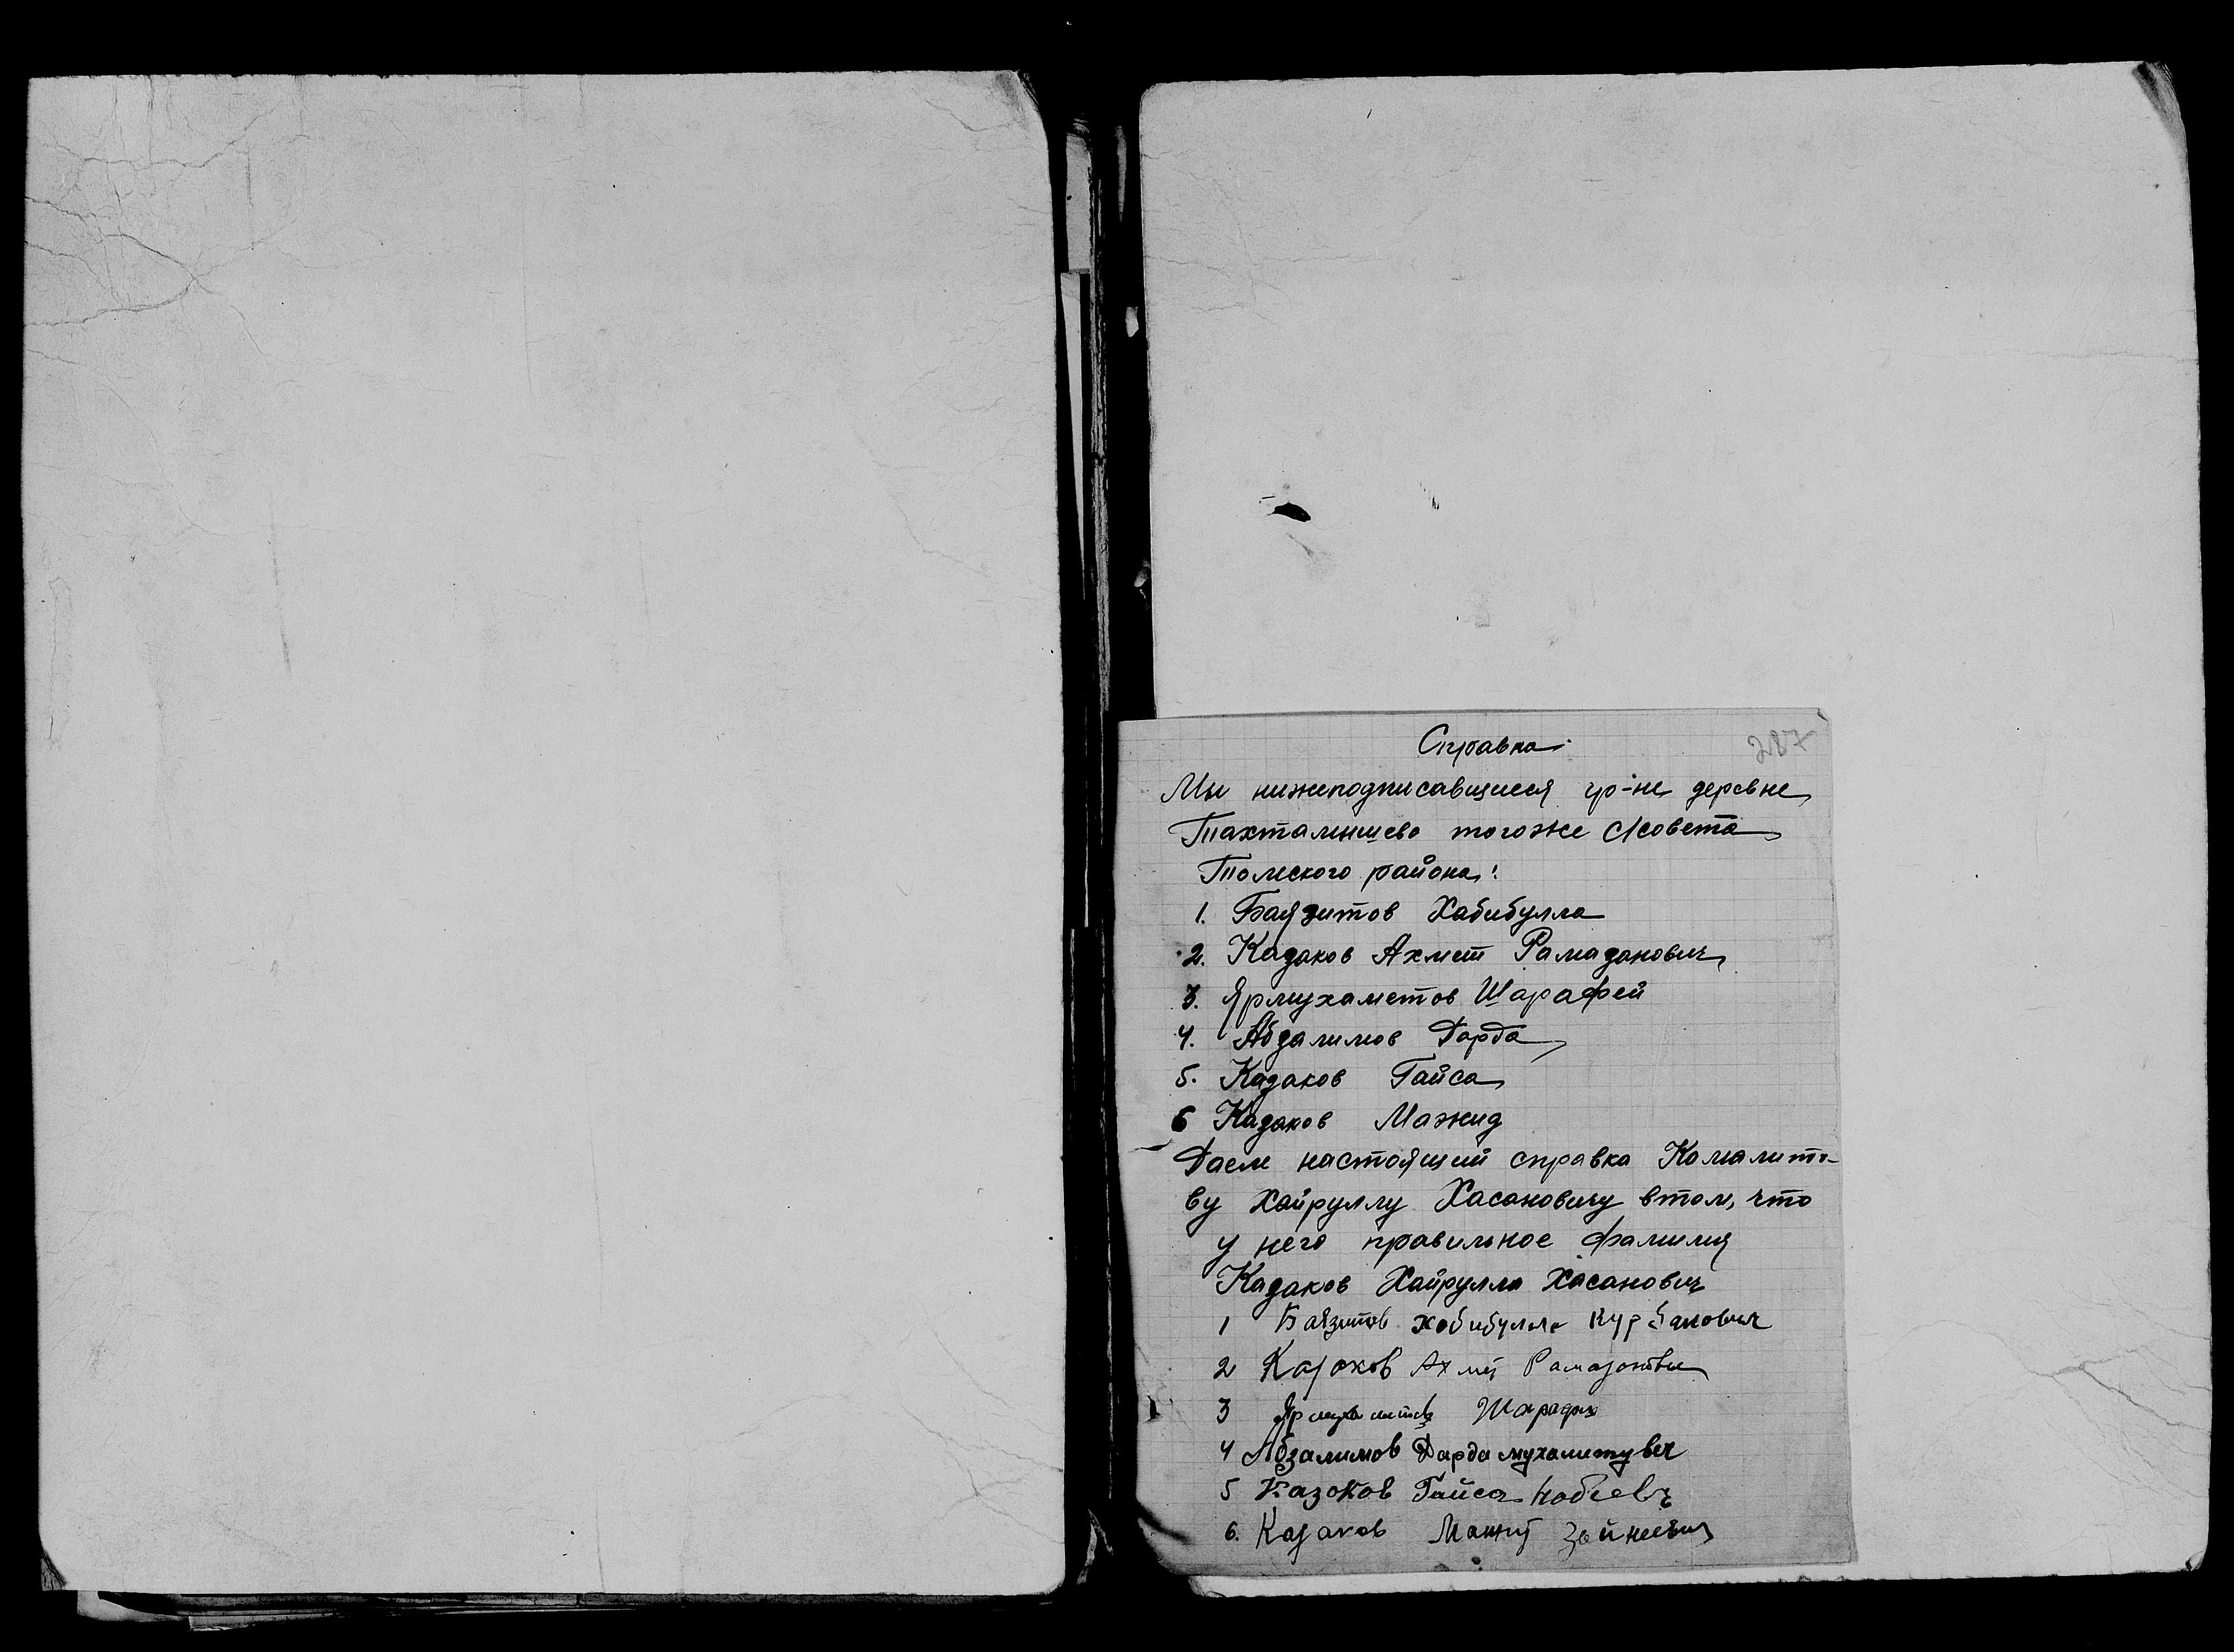 Справка.
287
Мы нижеподписавщиеся гр-не деревне
Тахталышево тогоже с/совета
Томского района:
1. Баязитов Хабибулла
2. Казаков Ахмет Рамазанович
3. Ярмухаметов Шарафей
4. Абзалимов Дарда
5. Казаков Гайса
6 Казаков Мажид
Даем настоящий справка Камалито-
ву Хайруллу Хасановичу втом, что
у него правильное фамилия
Казаков Хайрулла Хасанович
1 Баязитов Хабибулла Курбанович
2 Казаков Ахмет
3 Ярмухаметов
4 Абзалимов Дарда
5 Казаков Гайса
6. Казаков